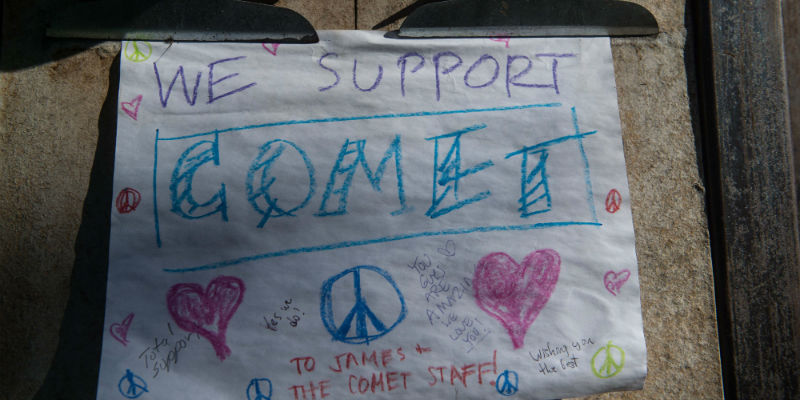 WE SUPPORT
COMET
YOU
GUYS
ARE
AMAZING
WE
LOVE
YOU!
Yes we
do!
Total
support
TO JAMES +
THE COMET STAFF!
Wishing you
the best